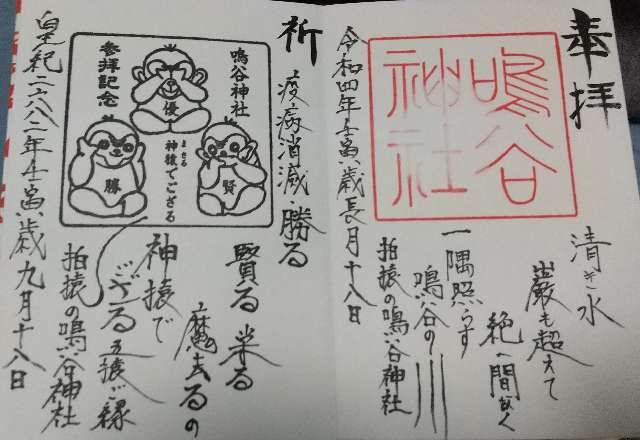 奉拝
鳴谷
神社
清き水
巌も超えて
絶へ間なく
一隅照らす
鳴谷の川
拍猿の鳴谷神社
令和四年壬寅歳長月十八日
祈
疫病消滅・勝る
鳴谷神社
参拝記念
優
勝
賢
まさる
神猿でござる
賢る 栄る
魔去るの
神猿で
ござる 五猿ご縁
拍猿の鳴谷神社
皇紀二六八二年壬寅歳九月十八日